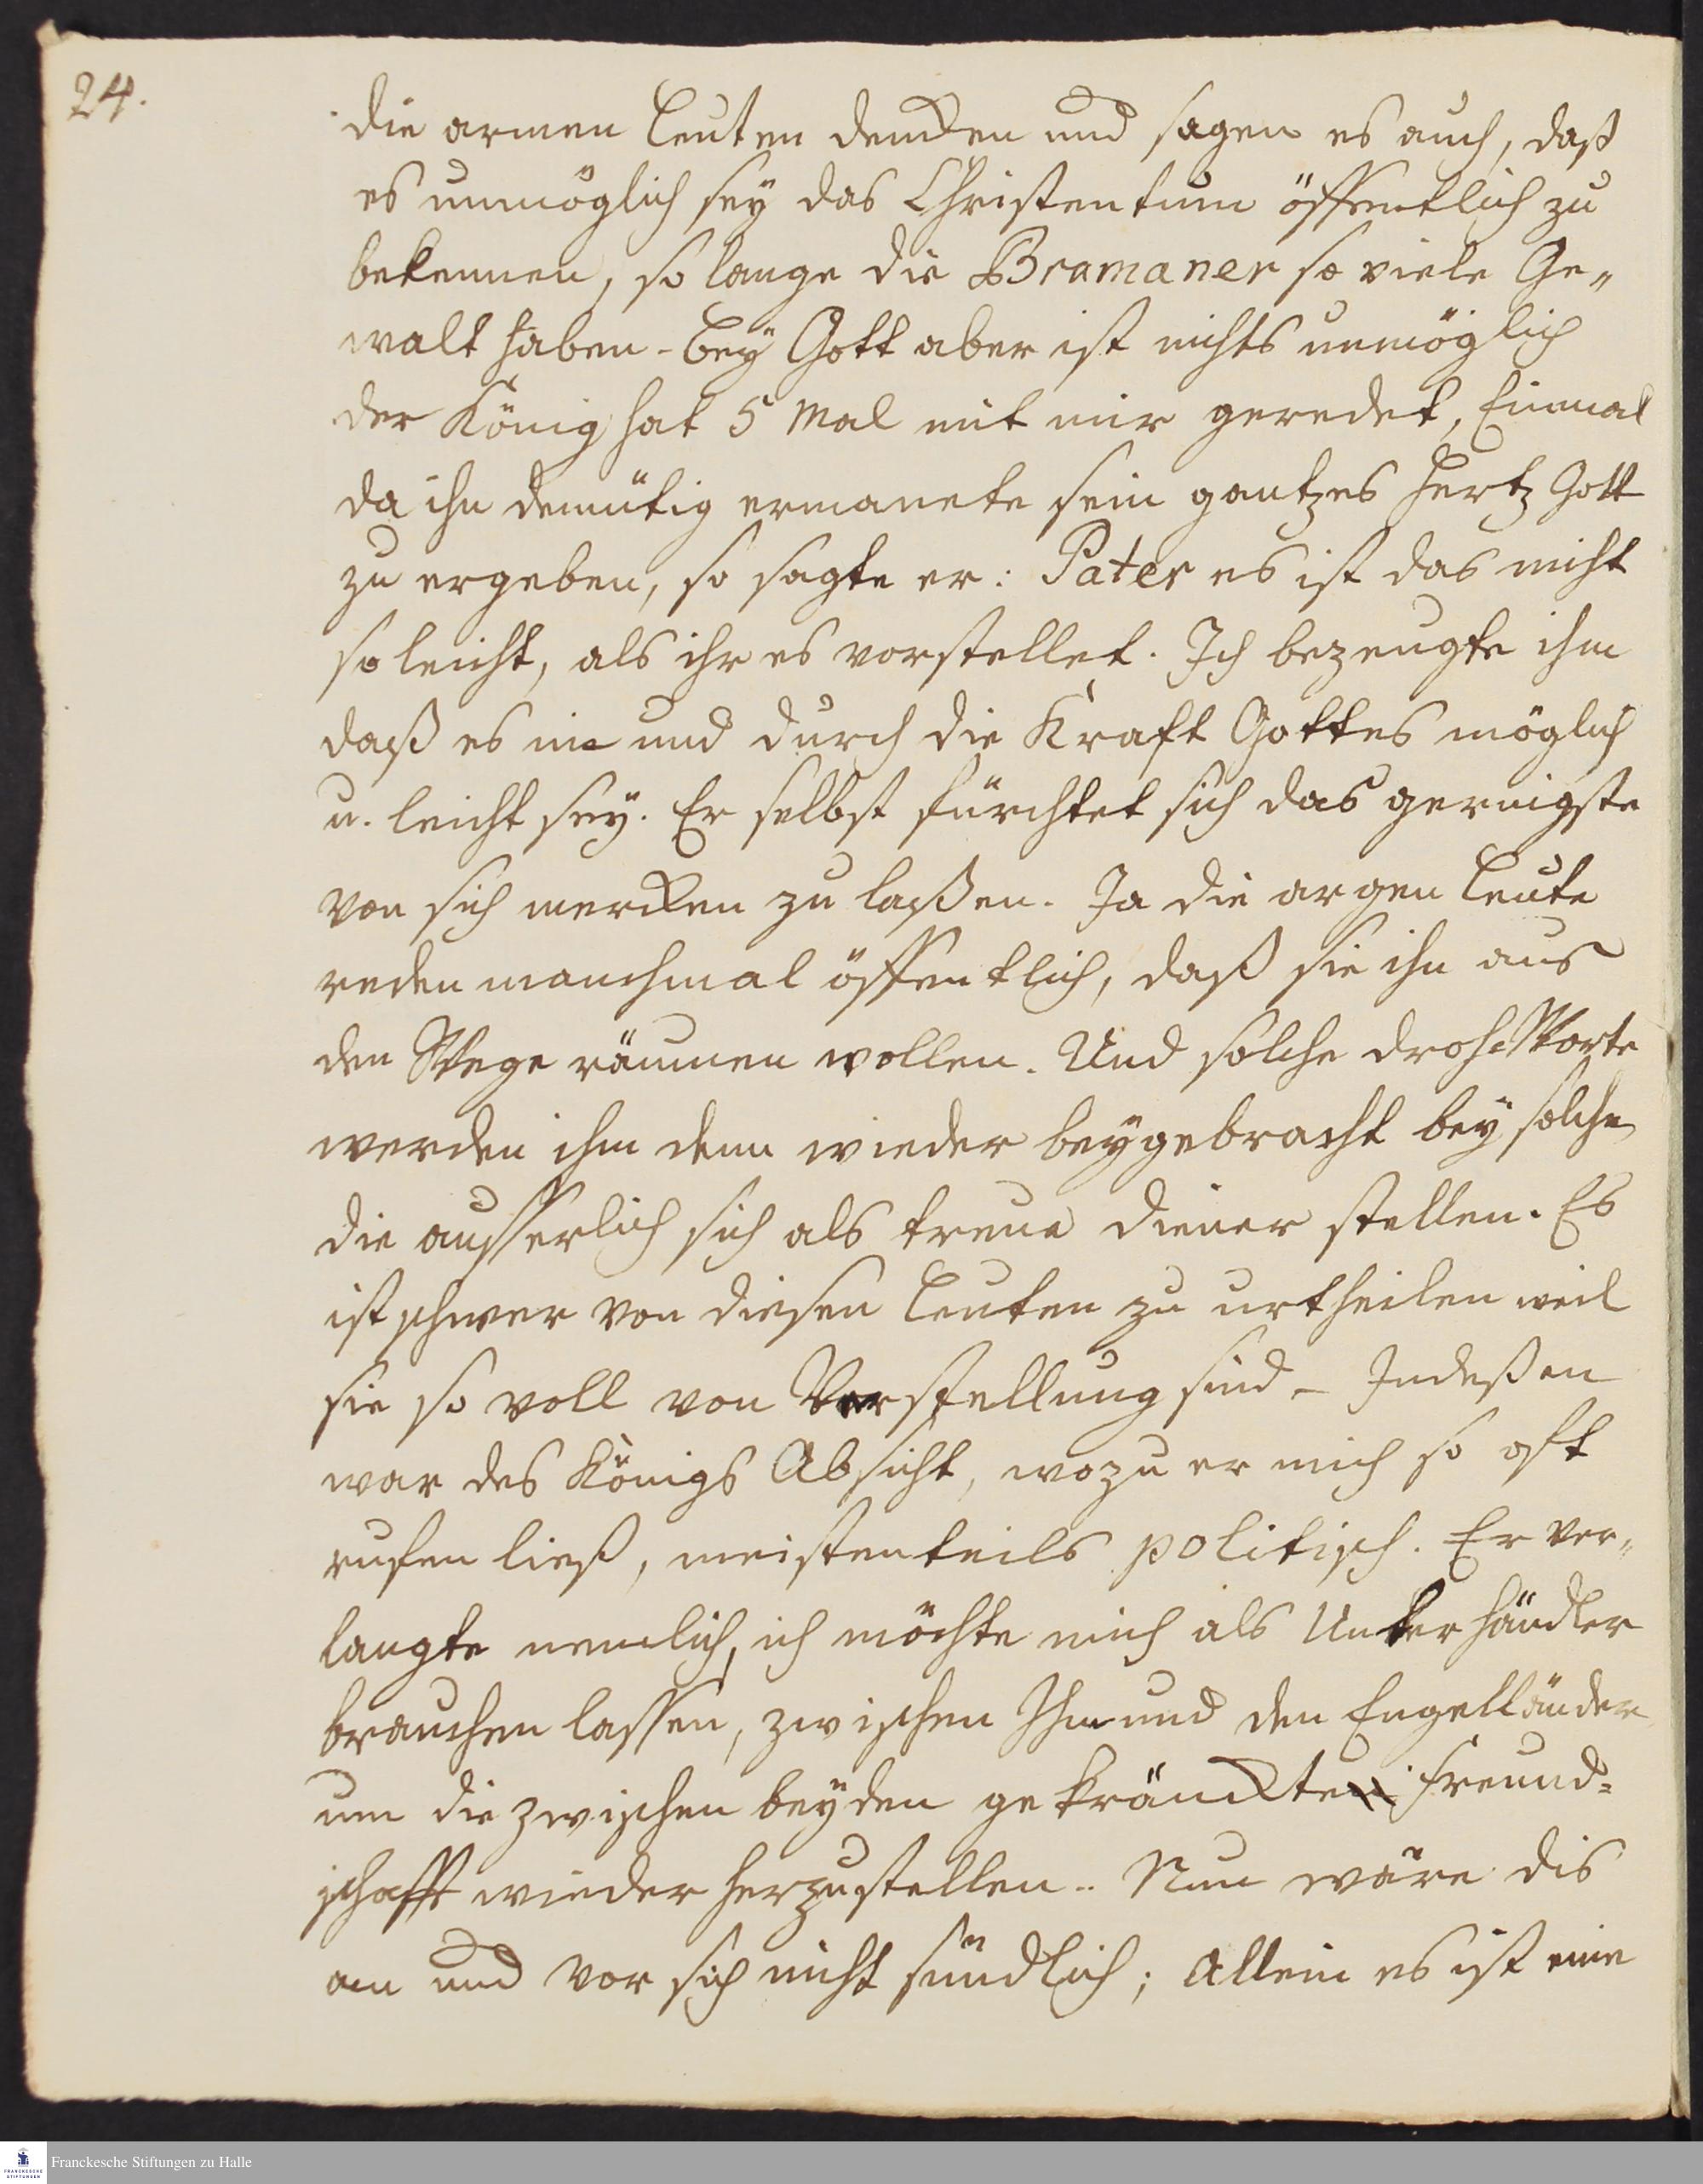 24.
die armen Leuten dencken und sagen es auch, daß
es unmöglich sey das Christentum öffentlich zu
bekennen, so lange die Bramaner so viele Ge„
walt haben - Bey Gott aber ist nichts unmöglich
der König hat 5 Mal mit mir geredet, Einmal
da ihn demütig ermanete sein gantzes Hertz Gott
zu ergeben, so sagte er: Pater es ist das nicht
so leicht, als ihr es vorstellet. Ich bezeugte ihm
daß es in und durch die Krafft Gottes möglich
u. leicht sey. Er selbst fürchtet sich das geringste
von sich mercken zu laßen. Ja die argen Leute
reden manchmal öffentlich, daß sie ihn aus
den Wege räumen wollen. Und solche droh Worte
werden ihm denn wieder beygebracht bey solchen
die ausserlich sich als treue diener stellen. Es
ist schwer von diesen Leuten zu urtheilen weil
sie so voll von Verstellung sind - Indeßen
war des Königs Absicht, wozu er mich so oft
rufen ließ, meistenteils politisch. Er ver„
langte nemlich, ich möchte mich als Unterhändler
brauchen lassen, zwischen Ihm und den Engelländer
um die zwischen beyden gekränckte Freund=
schafft wieder herzustellen.. Nun wäre dis
an und vor sich nicht sündlich; Allein es ist eine
Franckesche Stiftungen zu Halle
FRANCKESCHE
STIFTUNGEN